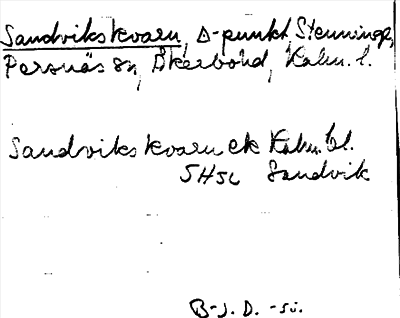 Sandvikskvarn, Δ-punkt, Stenninge,
Persnäs sn, Åkerbo hd, Kalm. l.
Sandvikskvarn ek Kalm. bl.
5H5c Sandvik
B-J. D. -50.